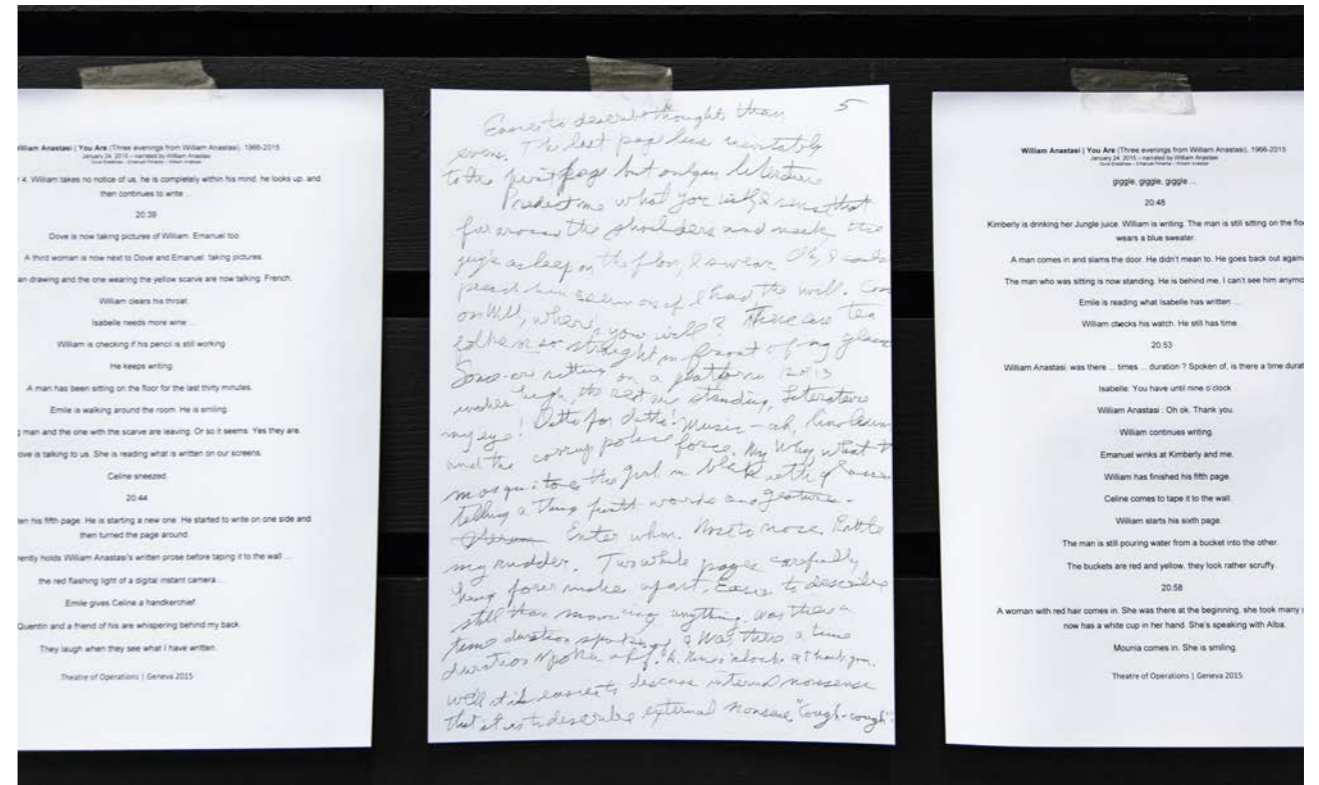 William Anastasi | You Are (Three evenings from William Anastasi), 1966-2015
January 24, 2015 – narrated by William Anastasi
4. William takes no notice of us, he is completely within his mind, he looks up, and
then continues to write ...
20:39
Dove is now taking pictures of William. Emanuel too.
A third woman is now next to Dove and Emanuel, taking pictures.
an drawing and the one wearing the yellow scarve are now talking. French.
William clears his throat.
Isabelle needs more wine ...
William is checking if his pencil is still working
He keeps writing
A man has been sitting on the floor for the last thirty minutes.
Emile is walking around the room. He is smiling.
g man and the one with the scarve are leaving. Or so it seems. Yes they are.
ove is talking to us. She is reading what is written on our screens.
Celine sneezed.
20:44
ten his fifth page. He is starting a new one. He started to write on one side and
then turned the page around.
rently holds William Anastasi's written prose before taping it to the wall ...
the red flashing light of a digital instant camera ...
Emile gives Celine a handkerchief
Quentin and a friend of his are whispering behind my back.
They laugh when they see what I have written.
Theatre of Operations | Geneva 2015
5
Easier to describe thoughts than
The last page
to the first page but only in literature
what you
around the shoulders and neck, the
asleep on the floor, I swear. Oh, I could
if I had the will. Com
on Will, where's your will? There are ten
so straight in front of my
on a platform 12 or 13
inches high, the rest are standing, Literature
my eye! Ditto for ditto! Music – ah,
and the police force. My Why what
mosquito the girl in black with glasses
telling a thing
Enter whom. Nose to nose. Rattle
my rudder. Two white pages carefully
hung four inches apart. Easier to describe
still than moving anything. Was there a
time duration Was there a time
duration
Well it is easier to discuss internal nonsense
that it is to describe external nonsense. "Cough-cough".
William Anastasi | You Are (Three evenings from William Anastasi), 1966-2015
January 24, 2015 – narrated by William Anastasi
giggle, giggle, giggle ...
20:48
Kimberly is drinking her Jungle juice. William is writing. The man is still sitting on the floo
wears a blue sweater.
A man comes in and slams the door. He didn't mean to. He goes back out again
The man who was sitting is now standing. He is behind me, I can't see him anymo
Emile is reading what Isabelle has written ...
William checks his watch. He still has time.
20:53
William Anastasi: was there ... times ... duration ? Spoken of, is there a time durat
Isabelle: You have until nine o'clock
William Anastasi : Oh ok. Thank you.
William continues writing.
Emanuel winks at Kimberly and me.
William has finished his fifth page.
Celine comes to tape it to the wall.
William starts his sixth page.
The man is still pouring water from a bucket into the other.
The buckets are red and yellow, they look rather scruffy.
20:58
A woman with red hair comes in. She was there at the beginning, she took many
now has a white cup in her hand. She's speaking with Alba.
Mounia comes in. She is smiling.
Theatre of Operations | Geneva 2015